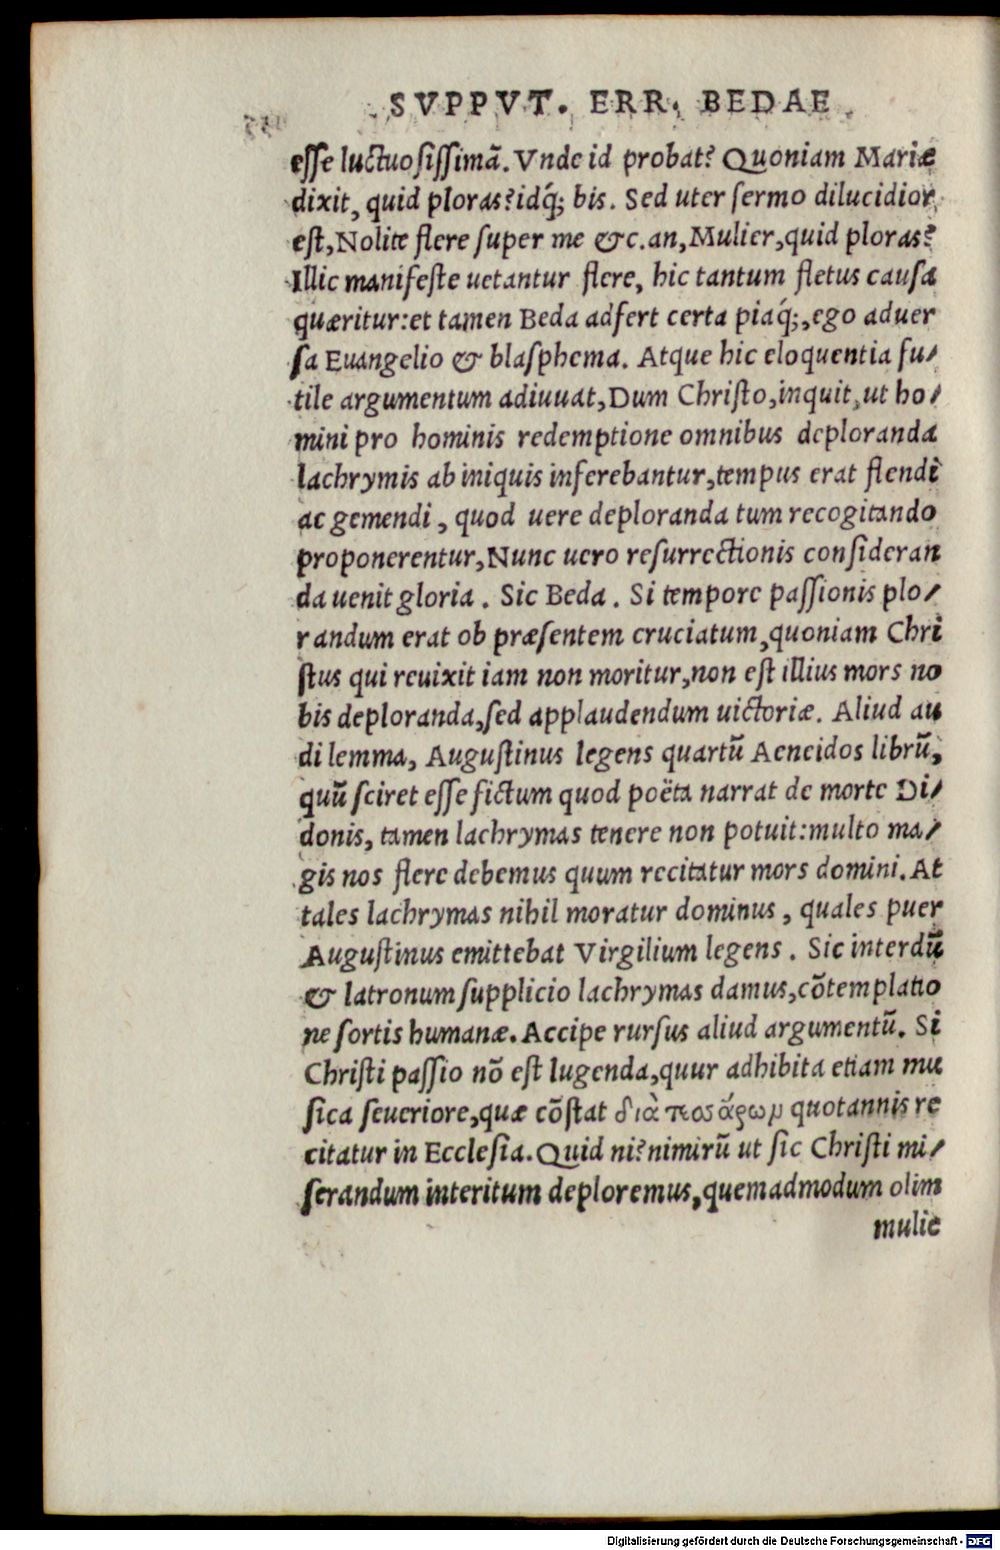 SVPPVT. ERR. BEDAE
esse luctuosissimã. Vnde id probat? Quoniam Mariæ
dixit, quid ploras? idq́; bis. Sed uter sermo dilucidior
est, Nolite flere super me &c. an, Mulier, quid ploras?
Illic manifeste uetantur flere, hic tantum fletus causa
quæritur: et tamen Beda adfert certa piaq́;, ego aduer
sa Euangelio & blasphema. Atque hic eloquentia fu/
tile argumentum adiuuat, Dum Christo, inquit, ut ho/
mini pro hominis redemptione omnibus deploranda
lachrymis ab iniquis inferebantur, tempus erat flendi
ac gemendi, quod uere deploranda tum recogitando
proponerentur, Nunc uero resurrectionis consideran
da uenit gloria. Sic Beda. Si tempore passionis plo/
randum erat ob præsentem cruciatum, quoniam Chri
stus qui reuixit iam non moritur, non est illius mors no
bis deploranda, sed applaudendum uictoriæ. Aliud au
di lemma, Augustinus legens quartũ Aeneidos librũ,
quũ sciret esse fictum quod poëta narrat de morte Di/
donis, tamen lachrymas tenere non potuit: multo ma/
gis nos flere debemus quum recitatur mors domini. At
tales lachrymas nihil moratur dominus, quales puer
Augustinus emittebat Virgilium legens. Sic interdũ
& latronum supplicio lachrymas damus, cõtemplatio
ne sortis humanæ. Accipe rursus aliud argumentũ. Si
Christi passio nõ est lugenda, quur adhibita etiam mu
sica seueriore, quæ cõstat διὰ τεσάρων quotannis re
citatur in Ecclesia. Quid ni? nimirũ ut sic Christi mi/
serandum interitum deploremus, quemadmodum olim
mulie
Digitalisierung gefördert durch die Deutsche Forschungsgemeinschaft - DFG